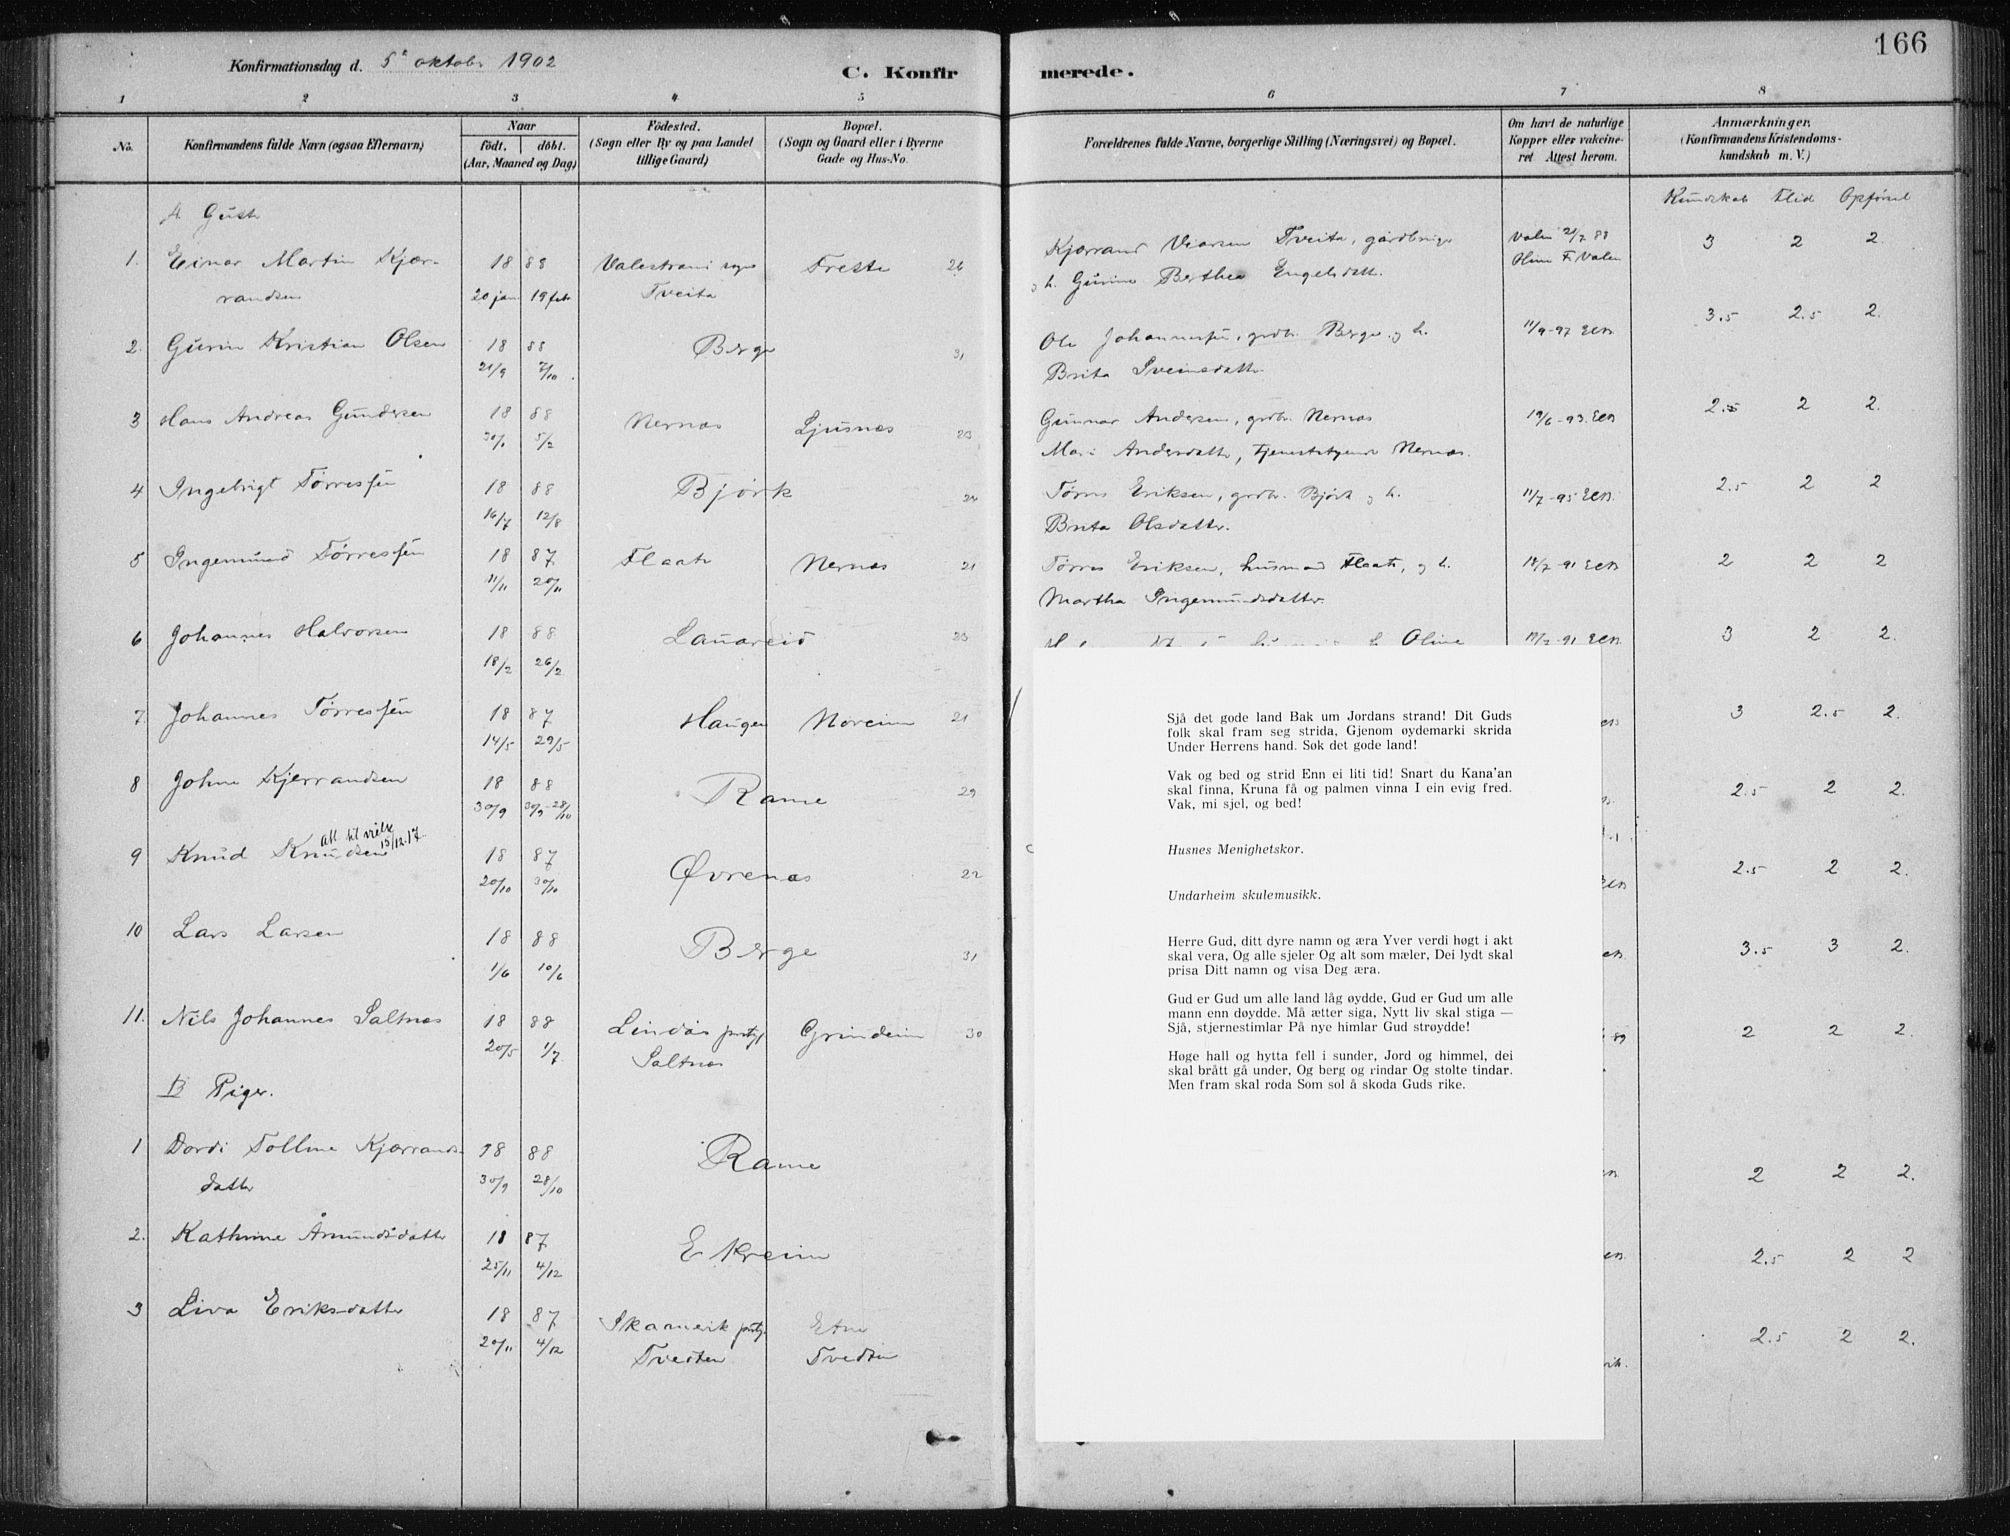 166
Konfirmationsdag d. 5 oktober 1902
C. Konfir merede.
1 2 3 4 5 6 7 8
No.
Konfirmandens fulde Navn (ogsaa Efternavn)
Naar
födt. döbt.
(Aar, Maaned og Dag)
Födested.
(Sogn eller By og paa Landet
tillige Gaard)
Bopæl.
(Sogn og Gaard eller i Byerne
Gade og Hus-No.
Forældrenes fulde Navne, borgerlige Stilling (Næringsvei) og Bopæl.
Om havt de naturlige
Kopper eller vakcine-
ret Attest herom.
Anmærkninger.
(Konfirmandens Kristendoms-
kundskab m. V.)
Kundskab Flid Opførsel
1. Einar Martin Kjær- 18 88 Valestrand sogn 26 Kjærrand Tveita, Valen 21/7 88 3 2 2.
randsen 20 jan 19 feb Tveita og h. Gurine Berthea Engelsdatt.
2. Kristian Olsen 18 88 Berge 31 Ole grdbr. Berge og h. 11/9-97 3.5 2.5 2.
21/9 7/10 Brita Sveinsdatter
3 Hans Andreas Gundersen 18 88 Nernæs Ljusnæs 23 Gunnar Andersen, grdbr. Nernæs 19/6-93 2.5 2 2.
30/1 5/2 Mari Andersdatter, Nernæs.
4 Ingebrigt Tørressen 18 88 Bjørk 24 Tørres Eriksen, grdbr. Bjørk og h. 11/7-95 2.5 2 2
16/7 12/8 Brita Olsdatter.
5 Ingemund Tørressen 18 87 Flaate Nernæs 21 Tørres Eriksen, husmand Flaate, og h. 18/7-91 2 2 2
11/11 20/11 Martha Ingemundsdatter.
6 Johannes Halvorsen 18 88 Lauareid 23 Oline 3 2 2.
18/2 26/2
7. Johannes Tørressen 18 87 Haugen Noreim 21 3 2.5 2.
14/5 29/5
8 Johne Kjerrandsen 18 88 Rame 29 2.5 2 2.
30/9 30/9-28/10
att til vielse
15/12.17.
9 Knud Knudsen 18 87 Øvrenæs 22 2.5 2 2.
20/10 30/10
10 Lars Larsen 18 88 Berge 31 3.5 3 2.
1/6 10/6
11. Nils Johannes Saltnæs 18 88 Lindås Grindeim 30 89 2 2 2.
20/5 1/7 Saltnæs
B Piger.
1 Dordi Kjærrands- 18 88 Rame 2 2 2.
datter 30/9 28/10
2. Kathrine Åmundsdatter 18 87 Ekreim 2.5 2 2
25/11 4/12
3 Liva Eriksdatter 18 87 Skånevik Etne 2.5 2 2.
20/11 4/12 Tveiten Tvedten
Sjå det gode land Bak um Jordans strand! Dit Guds
folk skal fram seg strida, Gjenom øydemarki skrida
Under Herrens hand. Søk det gode land!
Vak og bed og strid Enn ei liti tid! Snart du Kana'an
skal finna, Kruna få og palmen vinna I ein evig fred.
Vak, mi sjel, og bed!
Husnes Menighetskor.
Undarheim skulemusikk.
Herre Gud, ditt dyre namn og æra Yver verdi høgt i akt
skal vera, Og alle sjeler Og alt som mæler, Dei lydt skal
prisa Ditt namn og visa Deg æra.
Gud er Gud um alle land låg øydde, Gud er Gud um alle
mann enn døydde. Må ætter siga, Nytt liv skal stiga —
Sjå, stjernestimlar På nye himlar Gud strøydde!
Høge hall og hytta fell i sunder, Jord og himmel, dei
skal brått gå under, Og berg og rindar Og stolte tindar.
Men fram skal roda Som sol å skoda Guds rike.